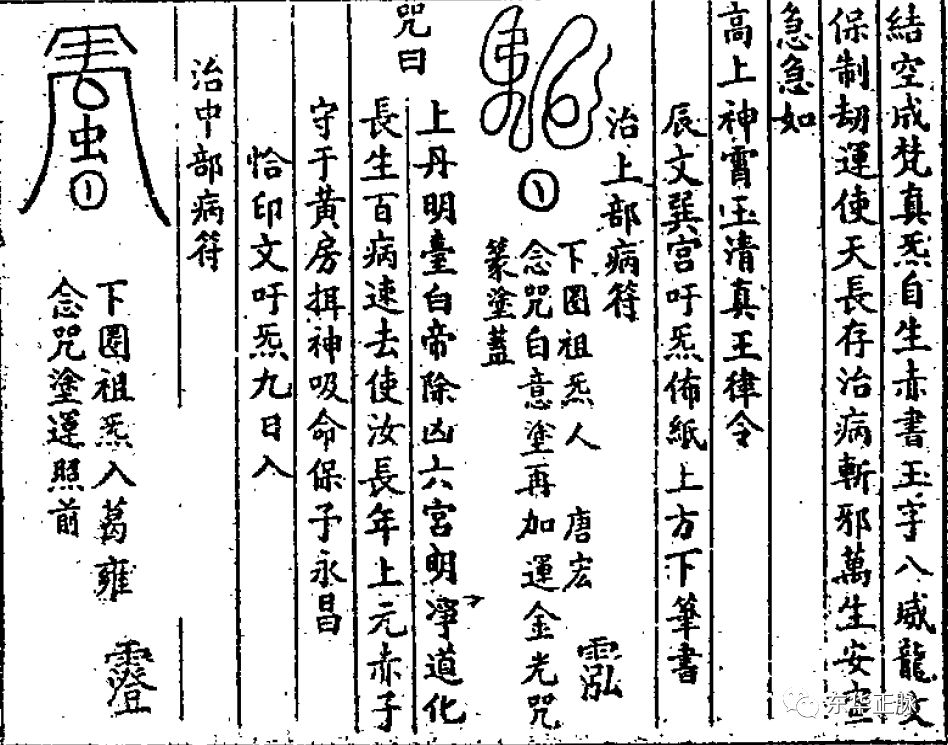 結空成梵真炁自生赤書玉字八威龍文
保制劫運使天長存治病斬邪萬生安
急急如
高上神霄玉清真王律令
辰文巽宮吁炁佈紙上方下筆書
治上部病符
下圈祖炁人 唐宏 霐
念咒白意塗再加運金光咒
篆塗蓋
咒曰
上丹明臺白帝除凶六宮明凈道化
長生百病速去使汝長年上元赤子
守于黃房揖神吸命保予永昌
恰印文吁炁九日入
治中部病符
下圈祖炁入葛雍
念咒塗運照前
东华正脉